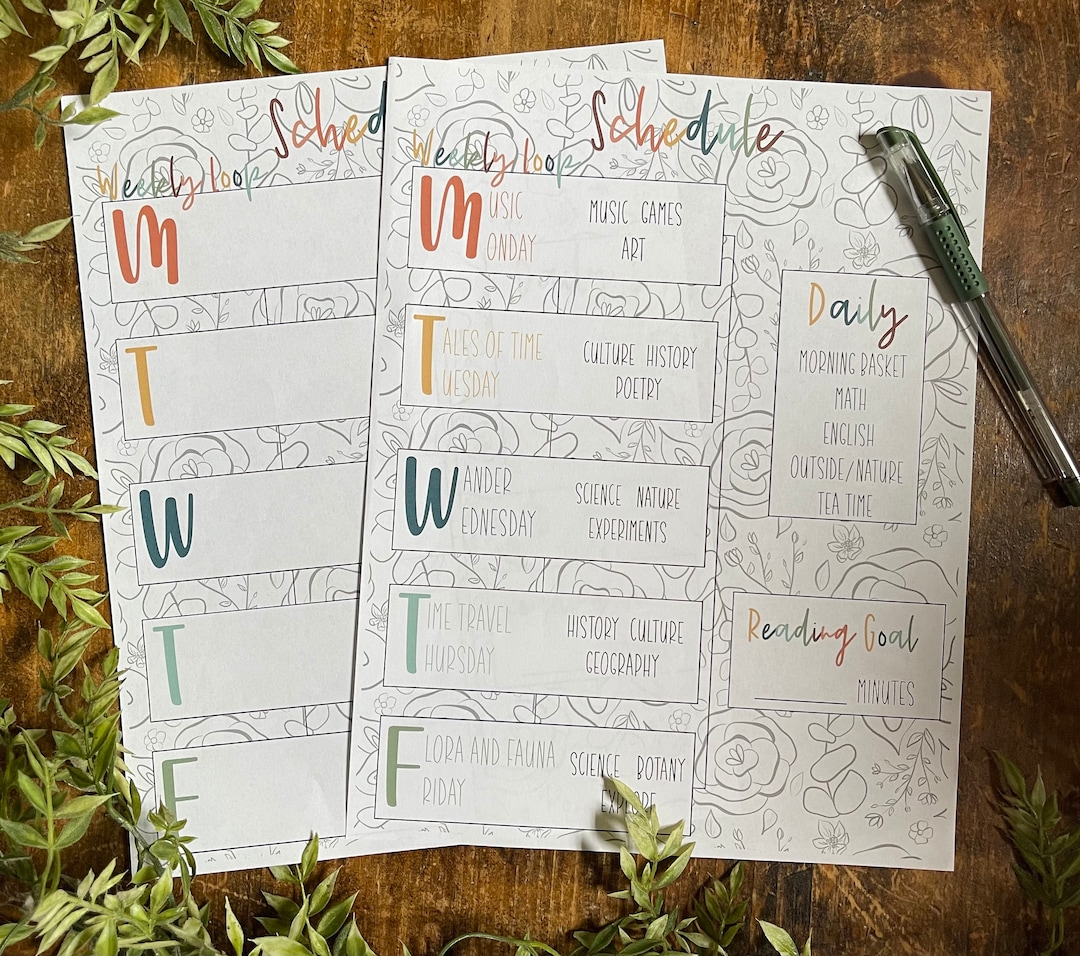 Sched
Weekly Loop
M
T
W
T
F
Schedule
Weekly Loop
MUSIC
MONDAY
MUSIC GAMES
ART
TALES OF TIME
TUESDAY
CULTURE HISTORY
POETRY
WANDER
WEDNESDAY
SCIENCE NATURE
EXPERIMENTS
TIME TRAVEL
THURSDAY
HISTORY CULTURE
GEOGRAPHY
FLORA AND FAUNA
FRIDAY
SCIENCE BOTANY
EXPLORE
Daily
MORNING BASKET
MATH
ENGLISH
OUTSIDE/NATURE
TEA TIME
Reading Goal
________ MINUTES